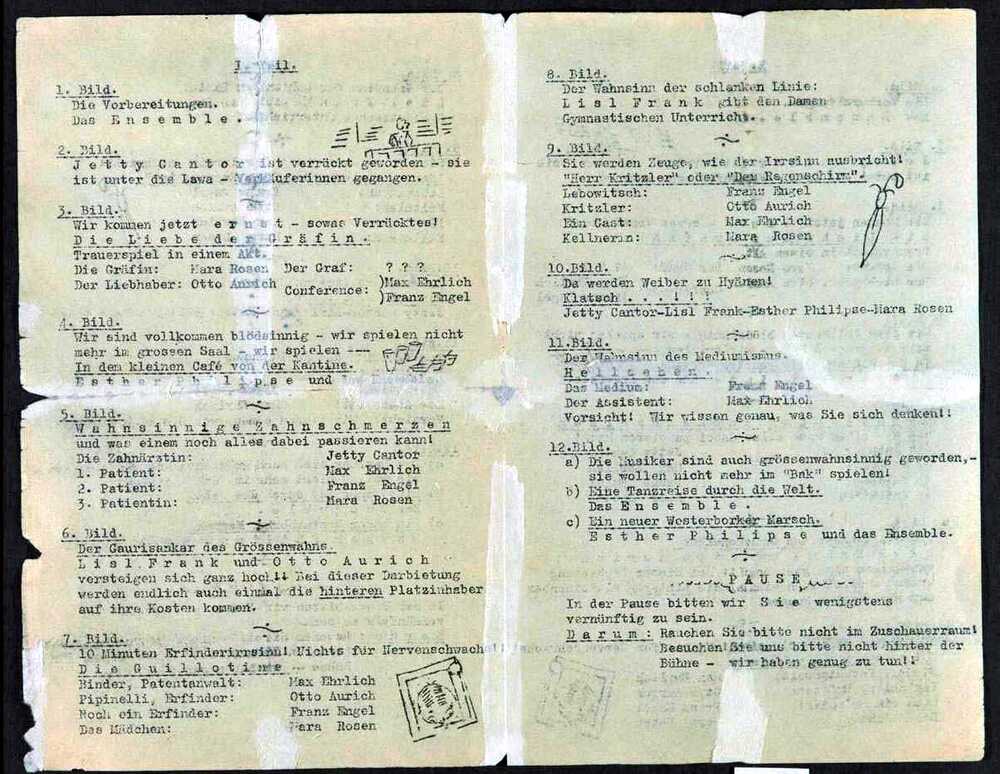 I. Teil.
1. Bild.
Die Vorbereitungen.
Das Ensemble.
2. Bild.
Jetty Cantor ist verrückt geworden - sie
ist unter die Lawa - Verkäuferinnen gegangen.
3. Bild.
Wir kommen jetzt ernst - sowas Verrücktes!
Die Liebe der Gräfin.
Trauerspiel in einem Akt.
Die Gräfin: Mara Rosen Der Graf: ? ? ?
Der Liebhaber: Otto Aurich Conference: )Max Ehrlich
)Franz Engel
4. Bild.
Wir sind vollkommen blödsinnig - wir spielen nicht
mehr im grossen Saal - wir spielen ---
In dem kleinen Café von der Kantine.
Esther Philipse und
5. Bild.
Wahnsinnige Zahnschmerzen
und was einem noch alles dabei passieren kann!
Die Zahnärztin: Jetty Cantor
1. Patient: Max Ehrlich
2. Patient: Franz Engel
3. Patientin: Mara Rosen
6. Bild.
Der Gaurisankar des Grössenwahns.
Lisl Frank und Otto Aurich
versteigen sich ganz hoch!! Bei dieser Darbietung
werden endlich auch einmal die hinteren Platzinhaber
auf ihre Kosten kommen.
7. Bild.
10 Minuten Erfinderirrsinn! Nichts für Nervenschwache!!
Die Guillotine
Binder, Patentanwalt: Max Ehrlich
Pipinelli, Erfinder: Otto Aurich
Noch ein Erfinder: Franz Engel
Das Mädchen: Mara Rosen
8. Bild.
Der Wahnsinn der schlanken Linie:
Lisl Frank gibt den Damen
Gymnastischen Unterricht.
9. Bild.
Sie werden Zeuge, wie der Irrsinn ausbricht!
"Herr Kritzler" oder "Der Regenschirm".
Lebowitsch: Franz Engel
Kritzler: Otto Aurich
Ein Gast: Max Ehrlich
Kellnerin: Mara Rosen
10.Bild.
Da werden Weiber zu Hyänen!
Klatsch . . . ! ! !
Jetty Cantor-Lisl Frank-Esther Philipse-Mara Rosen
11.Bild.
Der Wahnsinn des Mediumismus.
Hellsehen.
Das Medium: Franz Engel
Der Assistent: Max Ehrlich
Vorsicht! Wir wissen genau, was Sie sich denken!!
12.Bild.
a) Die Musiker sind auch grössenwahnsinnig geworden,-
sie wollen nicht mehr im "Bak" spielen!
b) Eine Tanzreise durch die Welt.
Das Ensemble.
c) Ein neuer Westerborker Marsch.
Esther Philipse und das Ensemble.
PAUSE
In der Pause bitten wir Sie wenigstens
vernünftig zu sein.
Darum: Rauchen Sie bitte nicht im Zuschauerraum!
Besuchen Sie uns bitte nicht hinter der
Bühne - wir haben genug zu tun!!